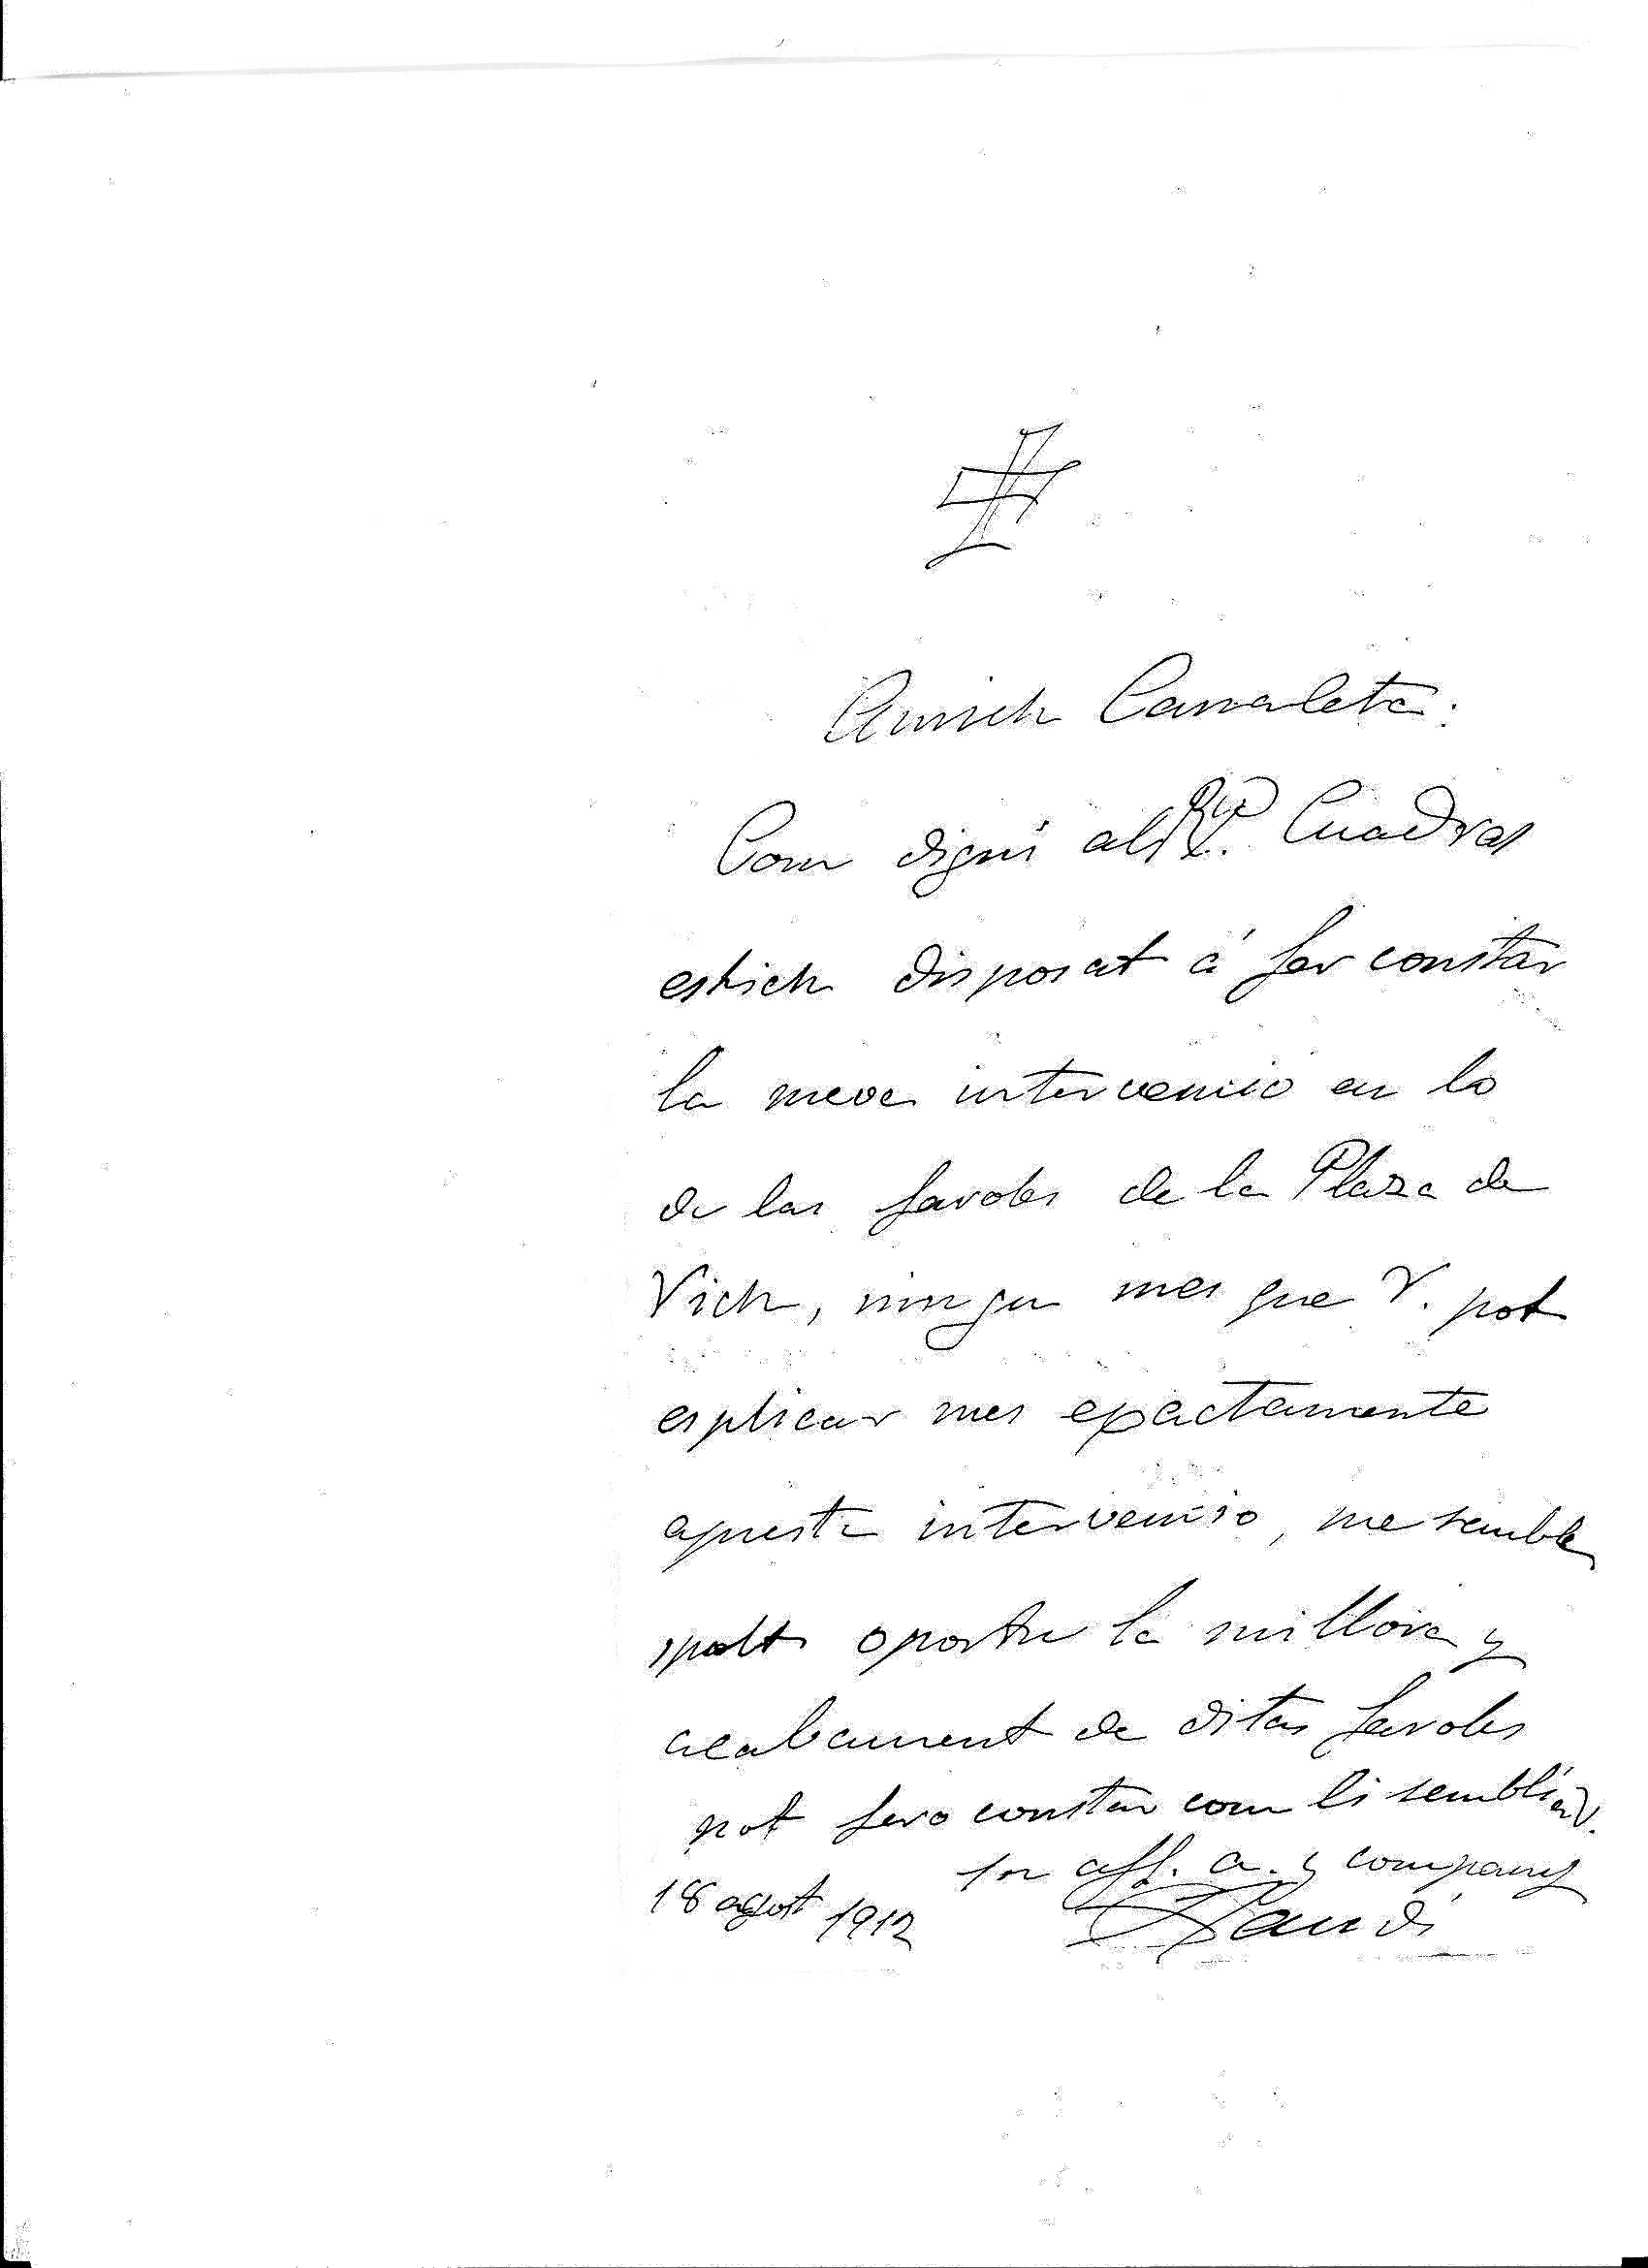 Amich Canaleta:
Com digui al Rt P. Cuadras
estich disposat á fer constar
la meva intervencio en lo
de las farolas de la Plaza de
Vich, ningu mes que V. pot
esplicar mes exactamente
aquesta intervencio, me sembla
molt oportu la millora y
acabament de ditas farolas
pot fero constar com li sembli á V.
son aff. a. y company
18 agost 1912 Gaudí